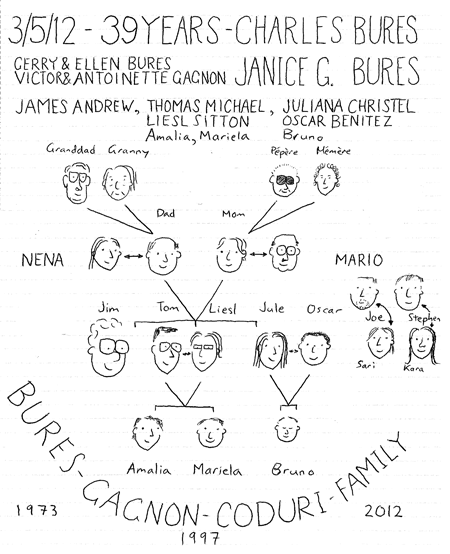 3/5/12 - 39 YEARS - CHARLES BURES
GERRY & ELLEN BURES
VICTOR & ANTOINETTE GAGNON JANICE G. BURES
JAMES ANDREW, THOMAS MICHAEL, JULIANA CHRISTEL
LIESL SITTON OSCAR BENITEZ
Amalia, Mariela Bruno
Granddad Granny Pépère Mémère
Dad Mom
NENA MARIO
Jim Tom Liesl Jule Oscar
Joe Stephen
Sari Kara
Amalia Mariela Bruno
BURES-GAGNON-CODURI-FAMILY
1973 1997 2012